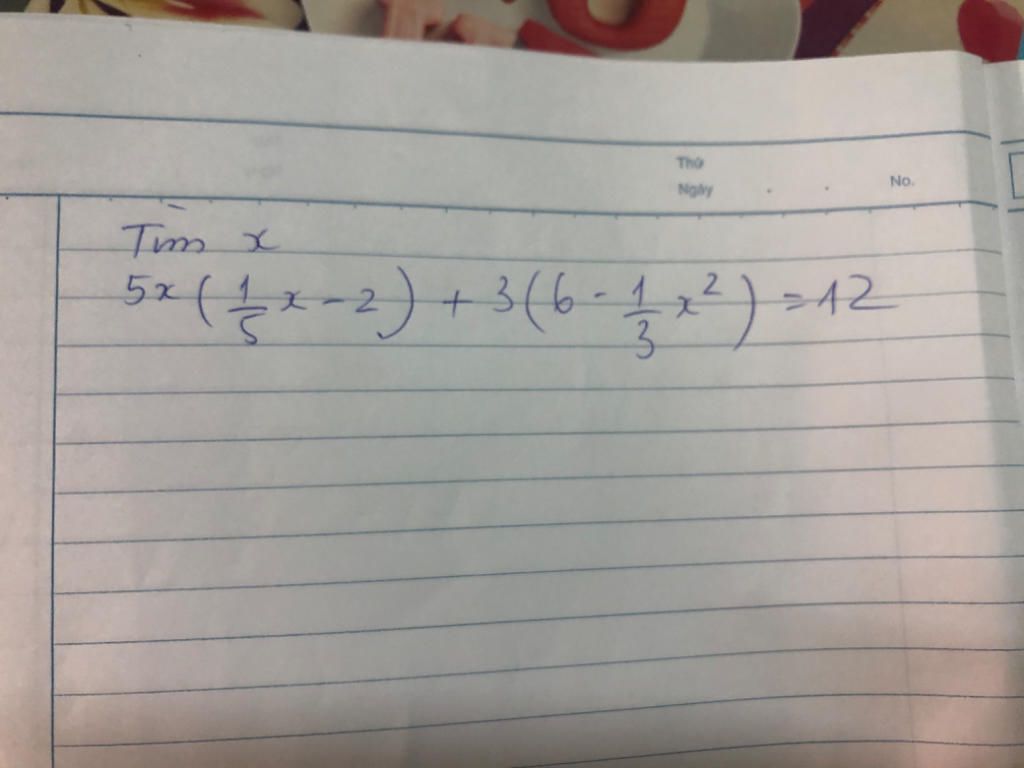 Thứ
Ngày . . No.
Tìm x
5x ( 1/5 x - 2 ) + 3 ( 6 - 1/3 x² ) = 12